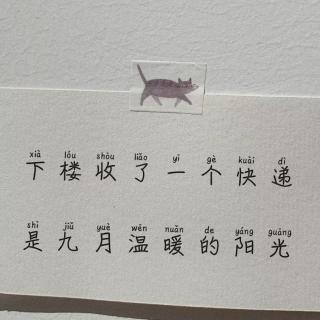 xià lóu shōu liǎo yí gè kuài dì
下楼收了一个快递
shì jiǔ yuè wēn nuǎn de yáng guāng
是九月温暖的阳光